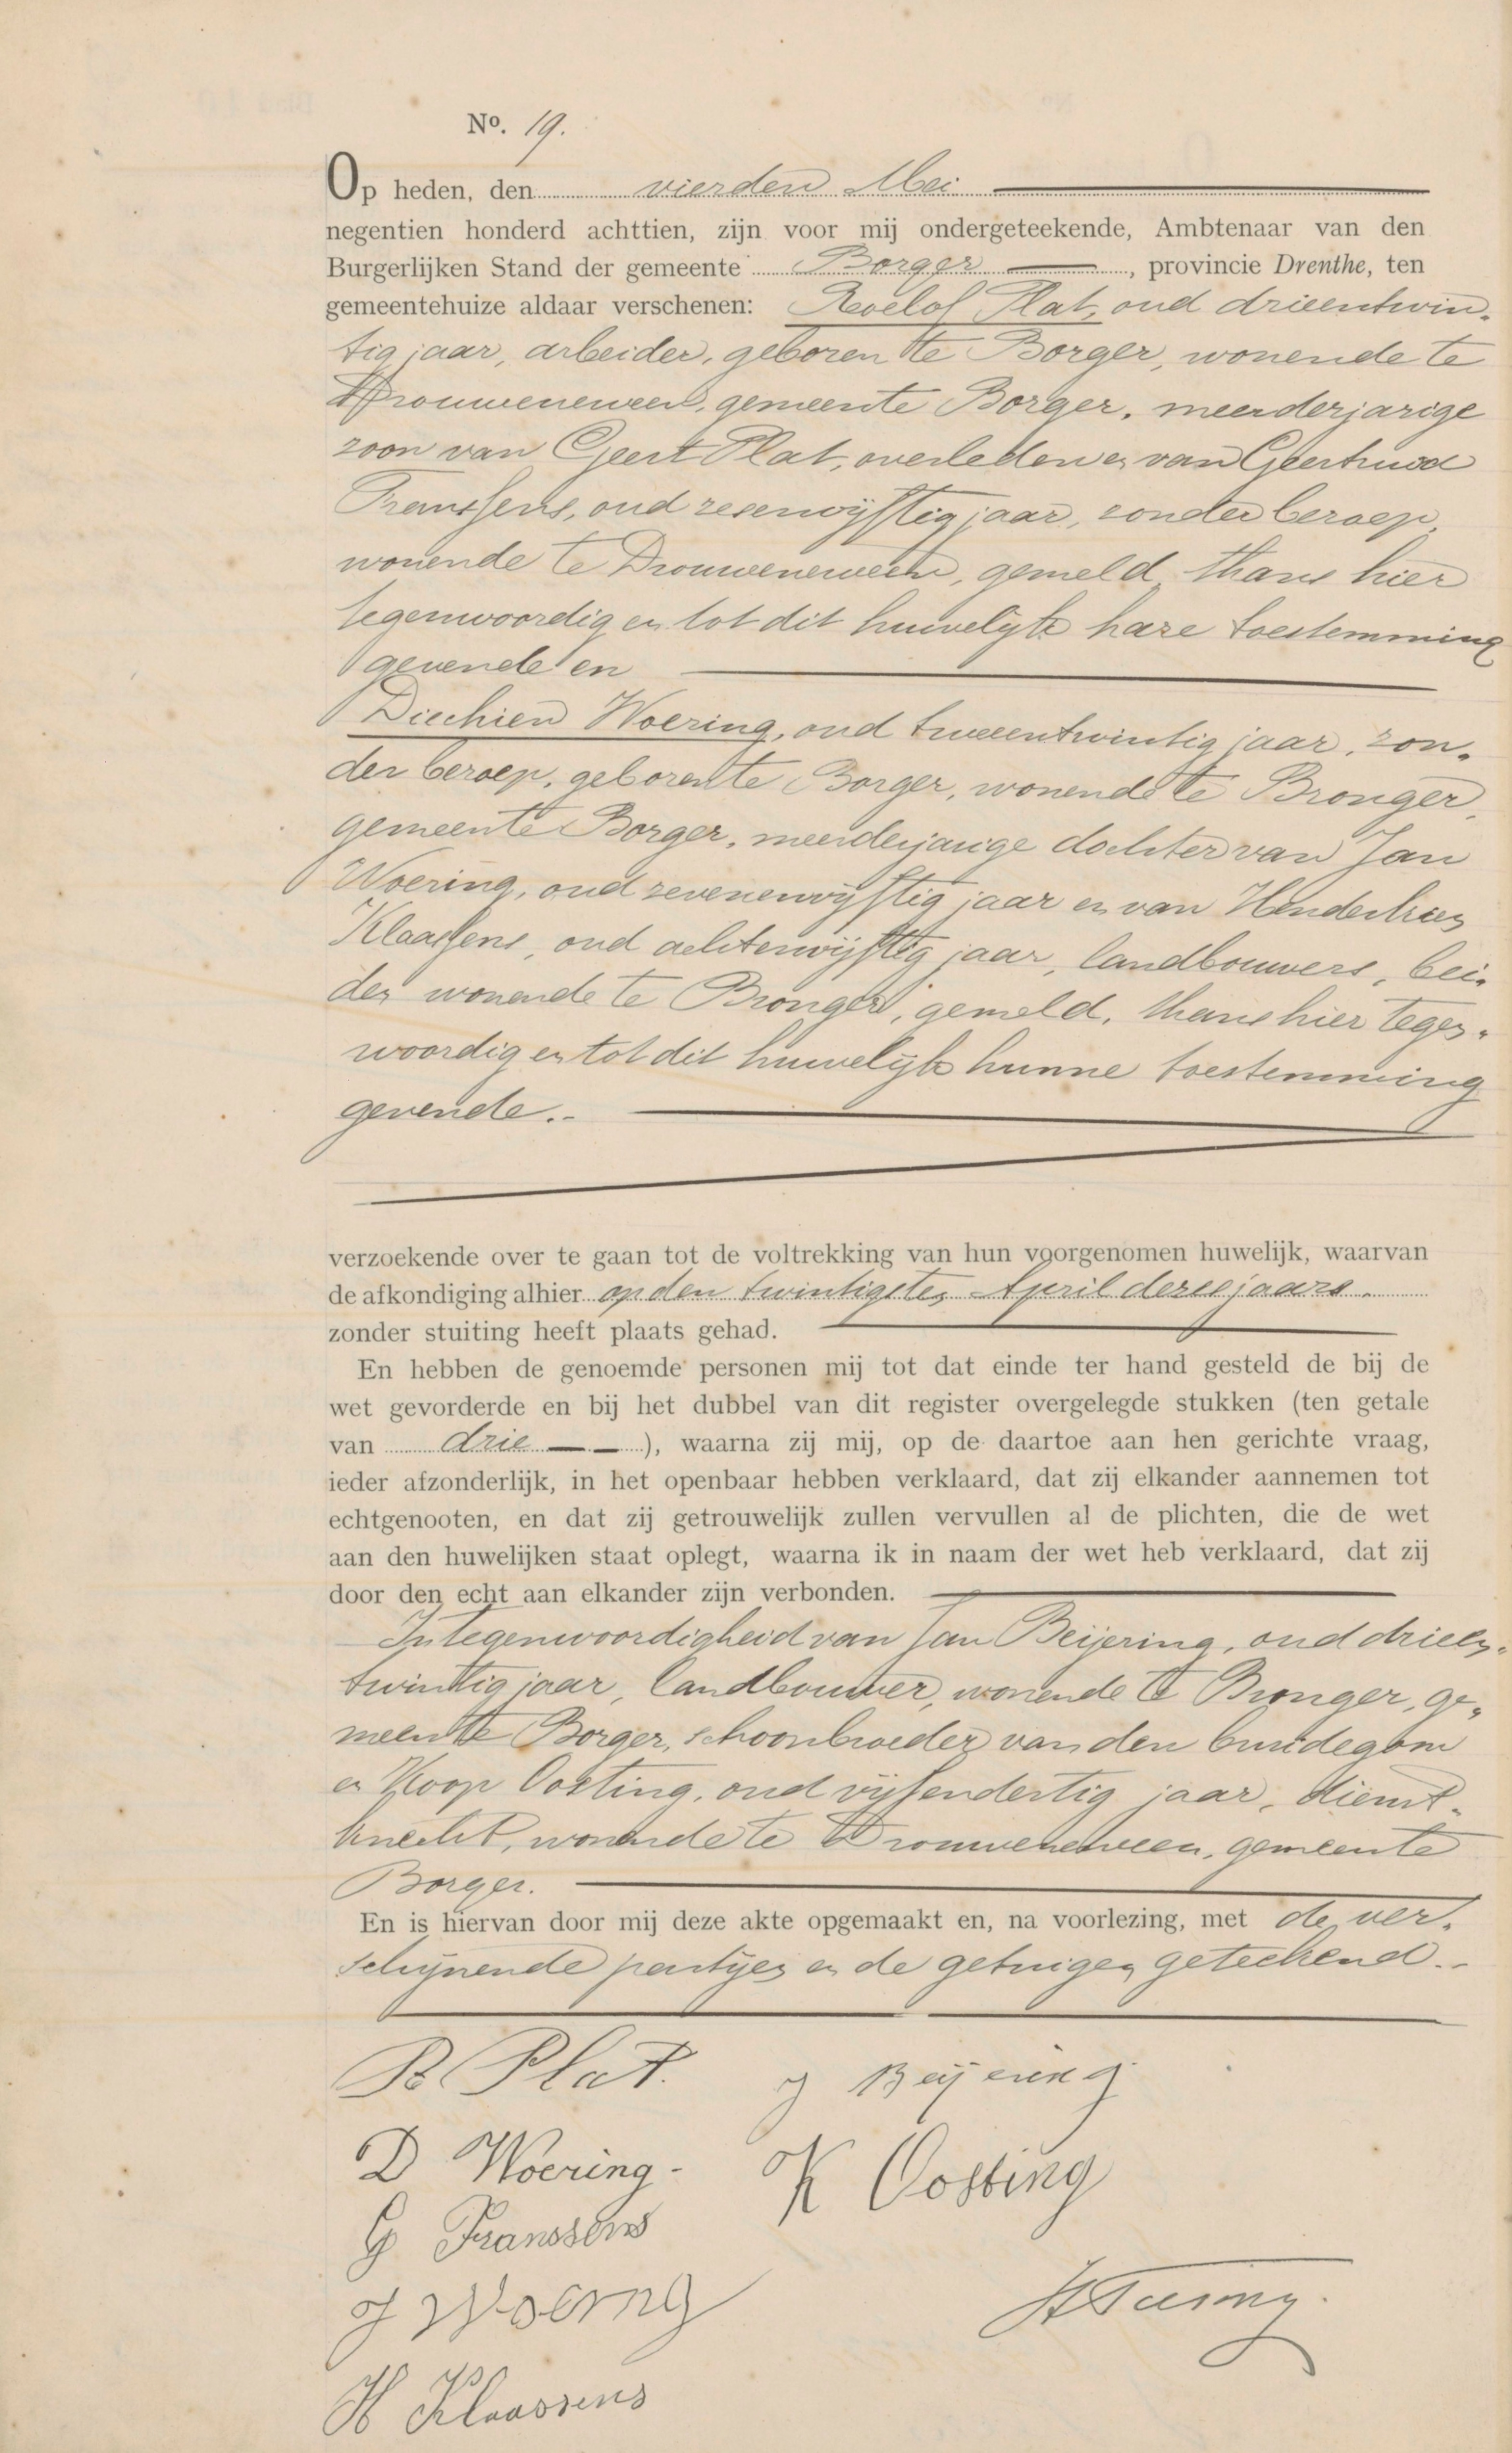 No. 19.
Op heden, den vierden Mei
negentien honderd achttien, zijn voor mij ondergeteekende, Ambtenaar van den
Burgerlijken Stand der gemeente Borger, provincie Drenthe, ten
gemeentehuize aldaar verschenen: Roelof Plat, oud drieentwin-
tig jaar, arbeider, geboren te Borger, wonende te
Drouwenerveen, gemeente Borger, meerderjarige
zoon van Geert Plat, overleden en van Geertruid
Franssens, oud zesenvijftig jaar, zonder beroep,
wonende te Drouwenerveen, gemeld, thans hier
tegenwoordig en tot dit huwelijk hare toestemming
gevende en
Diechien Woering, oud tweeentwintig jaar, zon-
der beroep, geboren te Borger, wonende te Bronger,
gemeente Borger, meerderjarige dochter van Jan
Woering, oud zevenenvijftig jaar en van Hendertien
Klaassens, oud achtenvijftig jaar, landbouwers, bei-
den wonende te Bronger, gemeld, thans hier tegen-
woordig en tot dit huwelijk hunne toestemming
gevende.-
verzoekende over te gaan tot de voltrekking van hun voorgenomen huwelijk, waarvan
de afkondiging alhier op den twintigsten April dezes jaars.
zonder stuiting heeft plaats gehad.
En hebben de genoemde personen mij tot dat einde ter hand gesteld de bij de
wet gevorderde en bij het dubbel van dit register overgelegde stukken (ten getale
van drie), waarna zij mij, op de daartoe aan hen gerichte vraag,
ieder afzonderlijk, in het openbaar hebben verklaard, dat zij elkander aannemen tot
echtgenooten, en dat zij getrouwelijk zullen vervullen al de plichten, die de wet
aan den huwelijken staat oplegt, waarna ik in naam der wet heb verklaard, dat zij
door den echt aan elkander zijn verbonden.
In tegenwoordigheid van Jan Beijering, oud drieen-
twintig jaar, landbouwer, wonende te Bronger, ge-
meente Borger, schoonbroeder van den bruidegom
en Koop Oosting, oud vijfendertig jaar, dienst-
knecht, wonende te Drouwenerveen, gemeente
Borger.
En is hiervan door mij deze akte opgemaakt en, na voorlezing, met de ver-
schijnende partijen en de getuigen geteekend.-
R Plat. J Beijering
D Woering - K Oosting
G Franssens
J Woering
H Klaassens